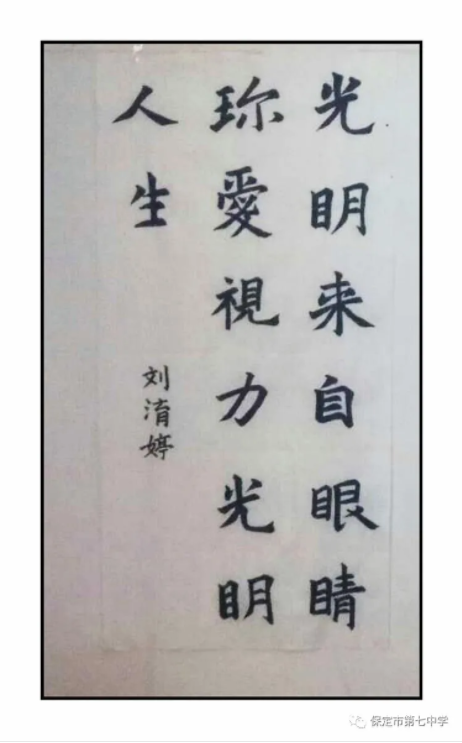 光明来自眼睛
珎愛視力光明
人生
刘淯婷
保定市第七中学